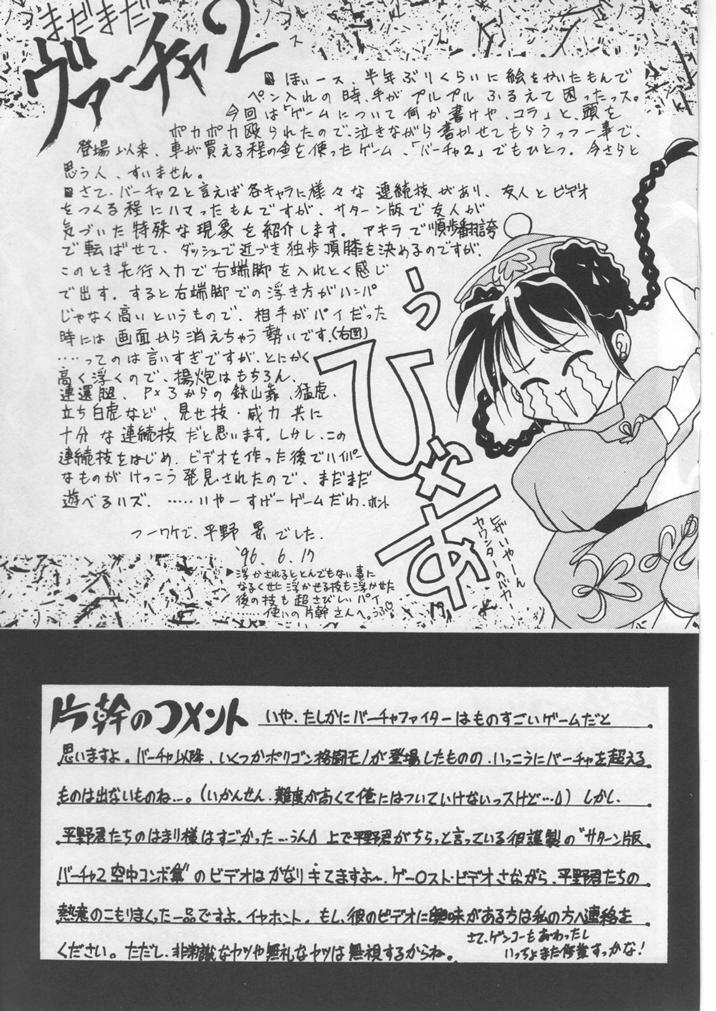 まだまだ
ヴァーチャ2
■ほいース、半年ぶりくらいに絵をかいたもんで
ペン入れの時、手がプルプルふるえて困ったっス。
今回は「ゲームについて何か書けや、コラ」と、頭を
ポカポカ殴られたので、泣きながら書かせてもらうっつー事で、
登場以来、車が買える程の金を使ったゲーム、「バーチャ2」でもひとつ。今さらと
思う人、すいません。
■さて、バーチャ2と言えば各キャラに様々な連続技があり、友人とビデオ
をつくる程にハマったもんですが、サターン版で友人が
気づいた特殊な現象を紹介します。アキラで順歩翻誇
で転ばせて、ダッシュで近づき独歩頂膝を決めるのですが、
このとき先行入力で右端脚を入れとく感じ
で出す。すると右端脚での浮き方がハンパ
じゃなく高いというもので、相手がパイだった
時には画面から消えちゃう勢いです。(右図)
……ってのは言いすぎですが、とにかく
高く浮くので、揚炮はもちろん、
連還腿、P×3からの鉄山靠、猛虎、
立ち白虎など、見せ技・威力共に
十分な連続技だと思います。しかし、この
連続技をはじめ、ビデオを作った後でハイパー
なものがけっこう発見されたので、まだまだ
遊べるハズ。……いやーすげーゲームだわ、ホント
つーワケで、平野 景でした。
'96.6.17
▶浮かされるととんでもない事に
なるくせに浮かせる技も浮かせた
後の技も超さびしいパイ
……使いの片幹さんへ。うふ♡
うっ
ひゃあ
ヒザいやーん
カウンターのバカ
片幹のコメント
いや、たしかにバーチャファイターはものすごいゲームだと
思いますよ。バーチャ以降、いくつかポリゴン格闘モノが登場したものの、いっこうにバーチャを超える
ものは出ないものね…。(いかんせん、難度が高くて俺にはついていけないっスけど…)しかし、
平野君たちのはまり様はすごかった…うん 上で平野君がちらっと言っている彼謹製の"サターン版
バーチャ2空中コンボ集"のビデオはかなりキてますよ〜。ゲーOスト・ビデオさながら、平野君たちの
熱意のこもりまくった一品ですよ、イヤホント。もし、彼のビデオに興味がある方は私の方へ連絡を
ください。ただし、非常識なヤツや無礼なヤツは無視するからね。
さて、ゲンコーもおわったし
いっちょまた修業すっかな!